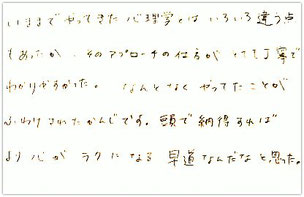 いままでやってきた心理学とはいろいろ違う点
もあったが、そのアプローチの仕方がとても丁寧で
わかりやすかった。なんとなくやってたことが
されたかんじです。頭で納得すれば
より心がラクになる早道なんだなと思った。